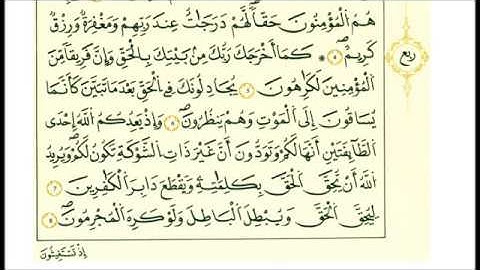 هُمُ الْمُؤْمِنُونَ حَقًّا لَّهُمْ دَرَجَاتٌ عِندَ رَبِّهِمْ وَمَغْفِرَةٌ وَرِزْقٌ
ربع
كَرِيمٌ كَمَا أَخْرَجَكَ رَبُّكَ مِن بَيْتِكَ بِالْحَقِّ وَإِنَّ فَرِيقًا مِّنَ
الْمُؤْمِنِينَ لَكَارِهُونَ يُجَادِلُونَكَ فِي الْحَقِّ بَعْدَ مَا تَبَيَّنَ كَأَنَّمَا
يُسَاقُونَ إِلَى الْمَوْتِ وَهُمْ يَنظُرُونَ وَإِذْ يَعِدُكُمُ اللَّهُ إِحْدَى
الطَّائِفَتَيْنِ أَنَّهَا لَكُمْ وَتَوَدُّونَ أَنَّ غَيْرَ ذَاتِ الشَّوْكَةِ تَكُونُ لَكُمْ وَيُرِيدُ
اللَّهُ أَن يُحِقَّ الْحَقَّ بِكَلِمَاتِهِ وَيَقْطَعَ دَابِرَ الْكَافِرِينَ
لِيُحِقَّ الْحَقَّ وَيُبْطِلَ الْبَاطِلَ وَلَوْ كَرِهَ الْمُجْرِمُونَ
إِذْ تَسْتَغِيثُونَ